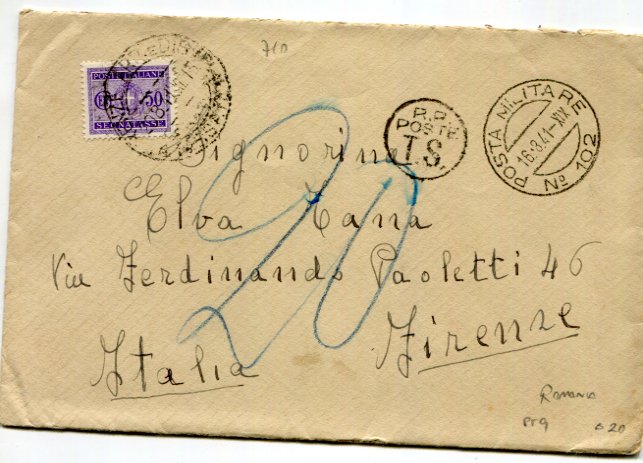 710
POSTE ITALIANE
50
SEGNATASSE
R.R.
POSTE
T.S.
POSTA MILITARE
16.3.41.XIX
Nº 102
Signorina
Elva Zana
Via Ferdinando Paoletti 46
Firenze
Italia
20